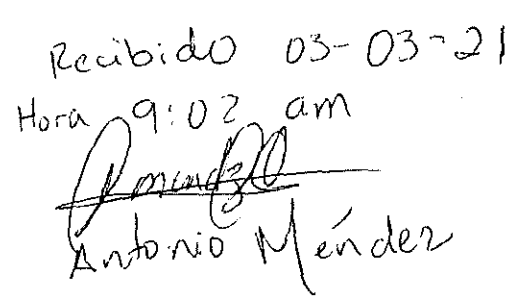 Recibido 03-03-21
Hora 9:02 am
Antonio Méndez